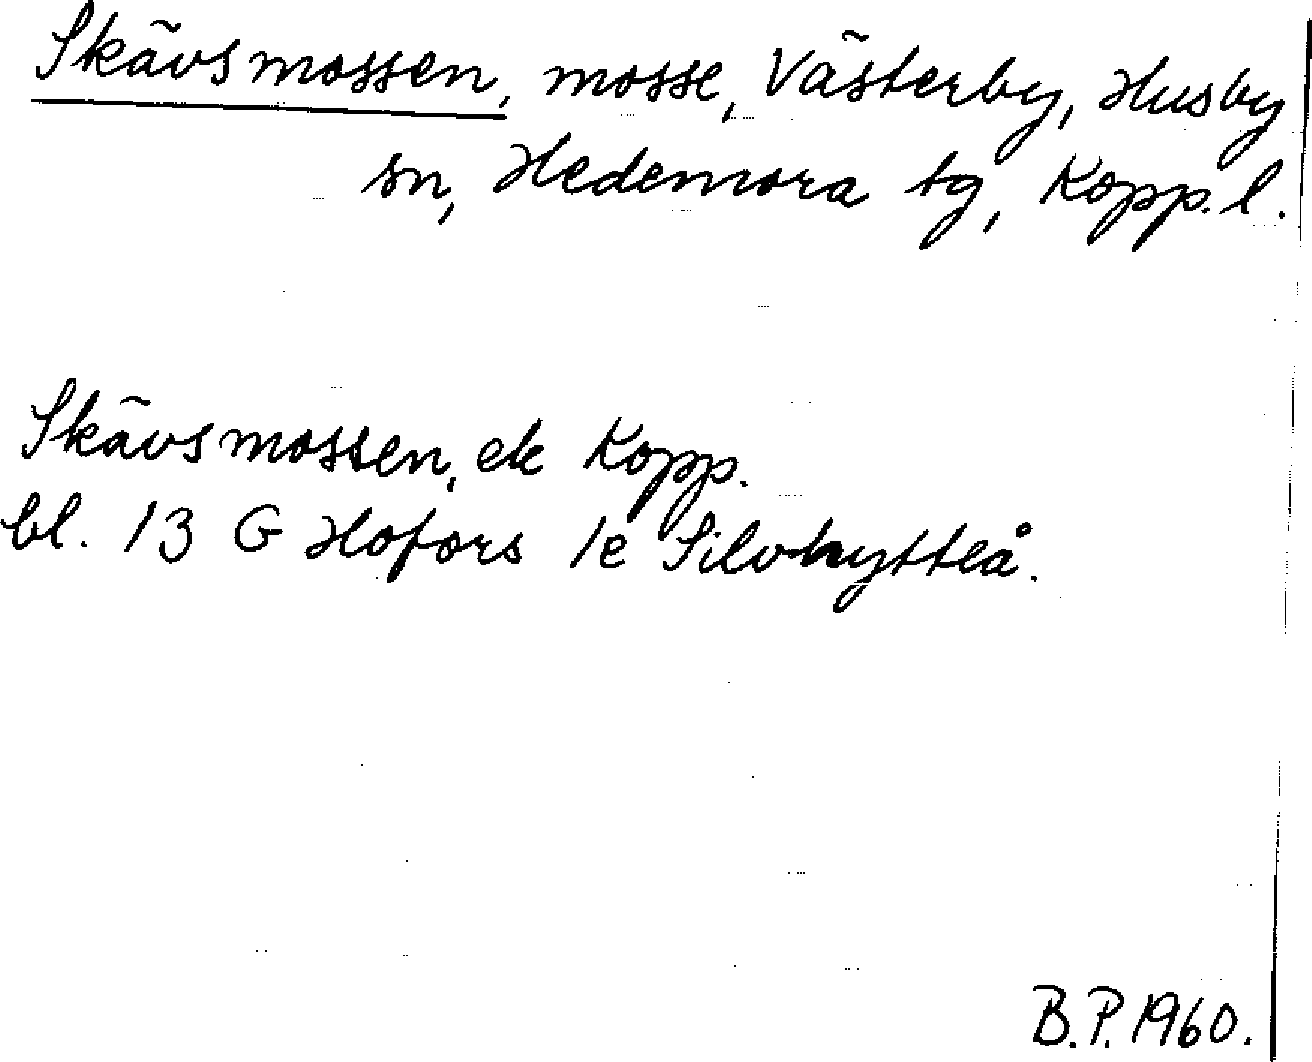 Skävsmossen, mosse, Västerby, Husby
sn, Hedemora tg, Kopp. l.
Skävsmossen, ek Kopp.
bl. 13 G Hofors 1e Silvhytteå.
B.P. 1960.